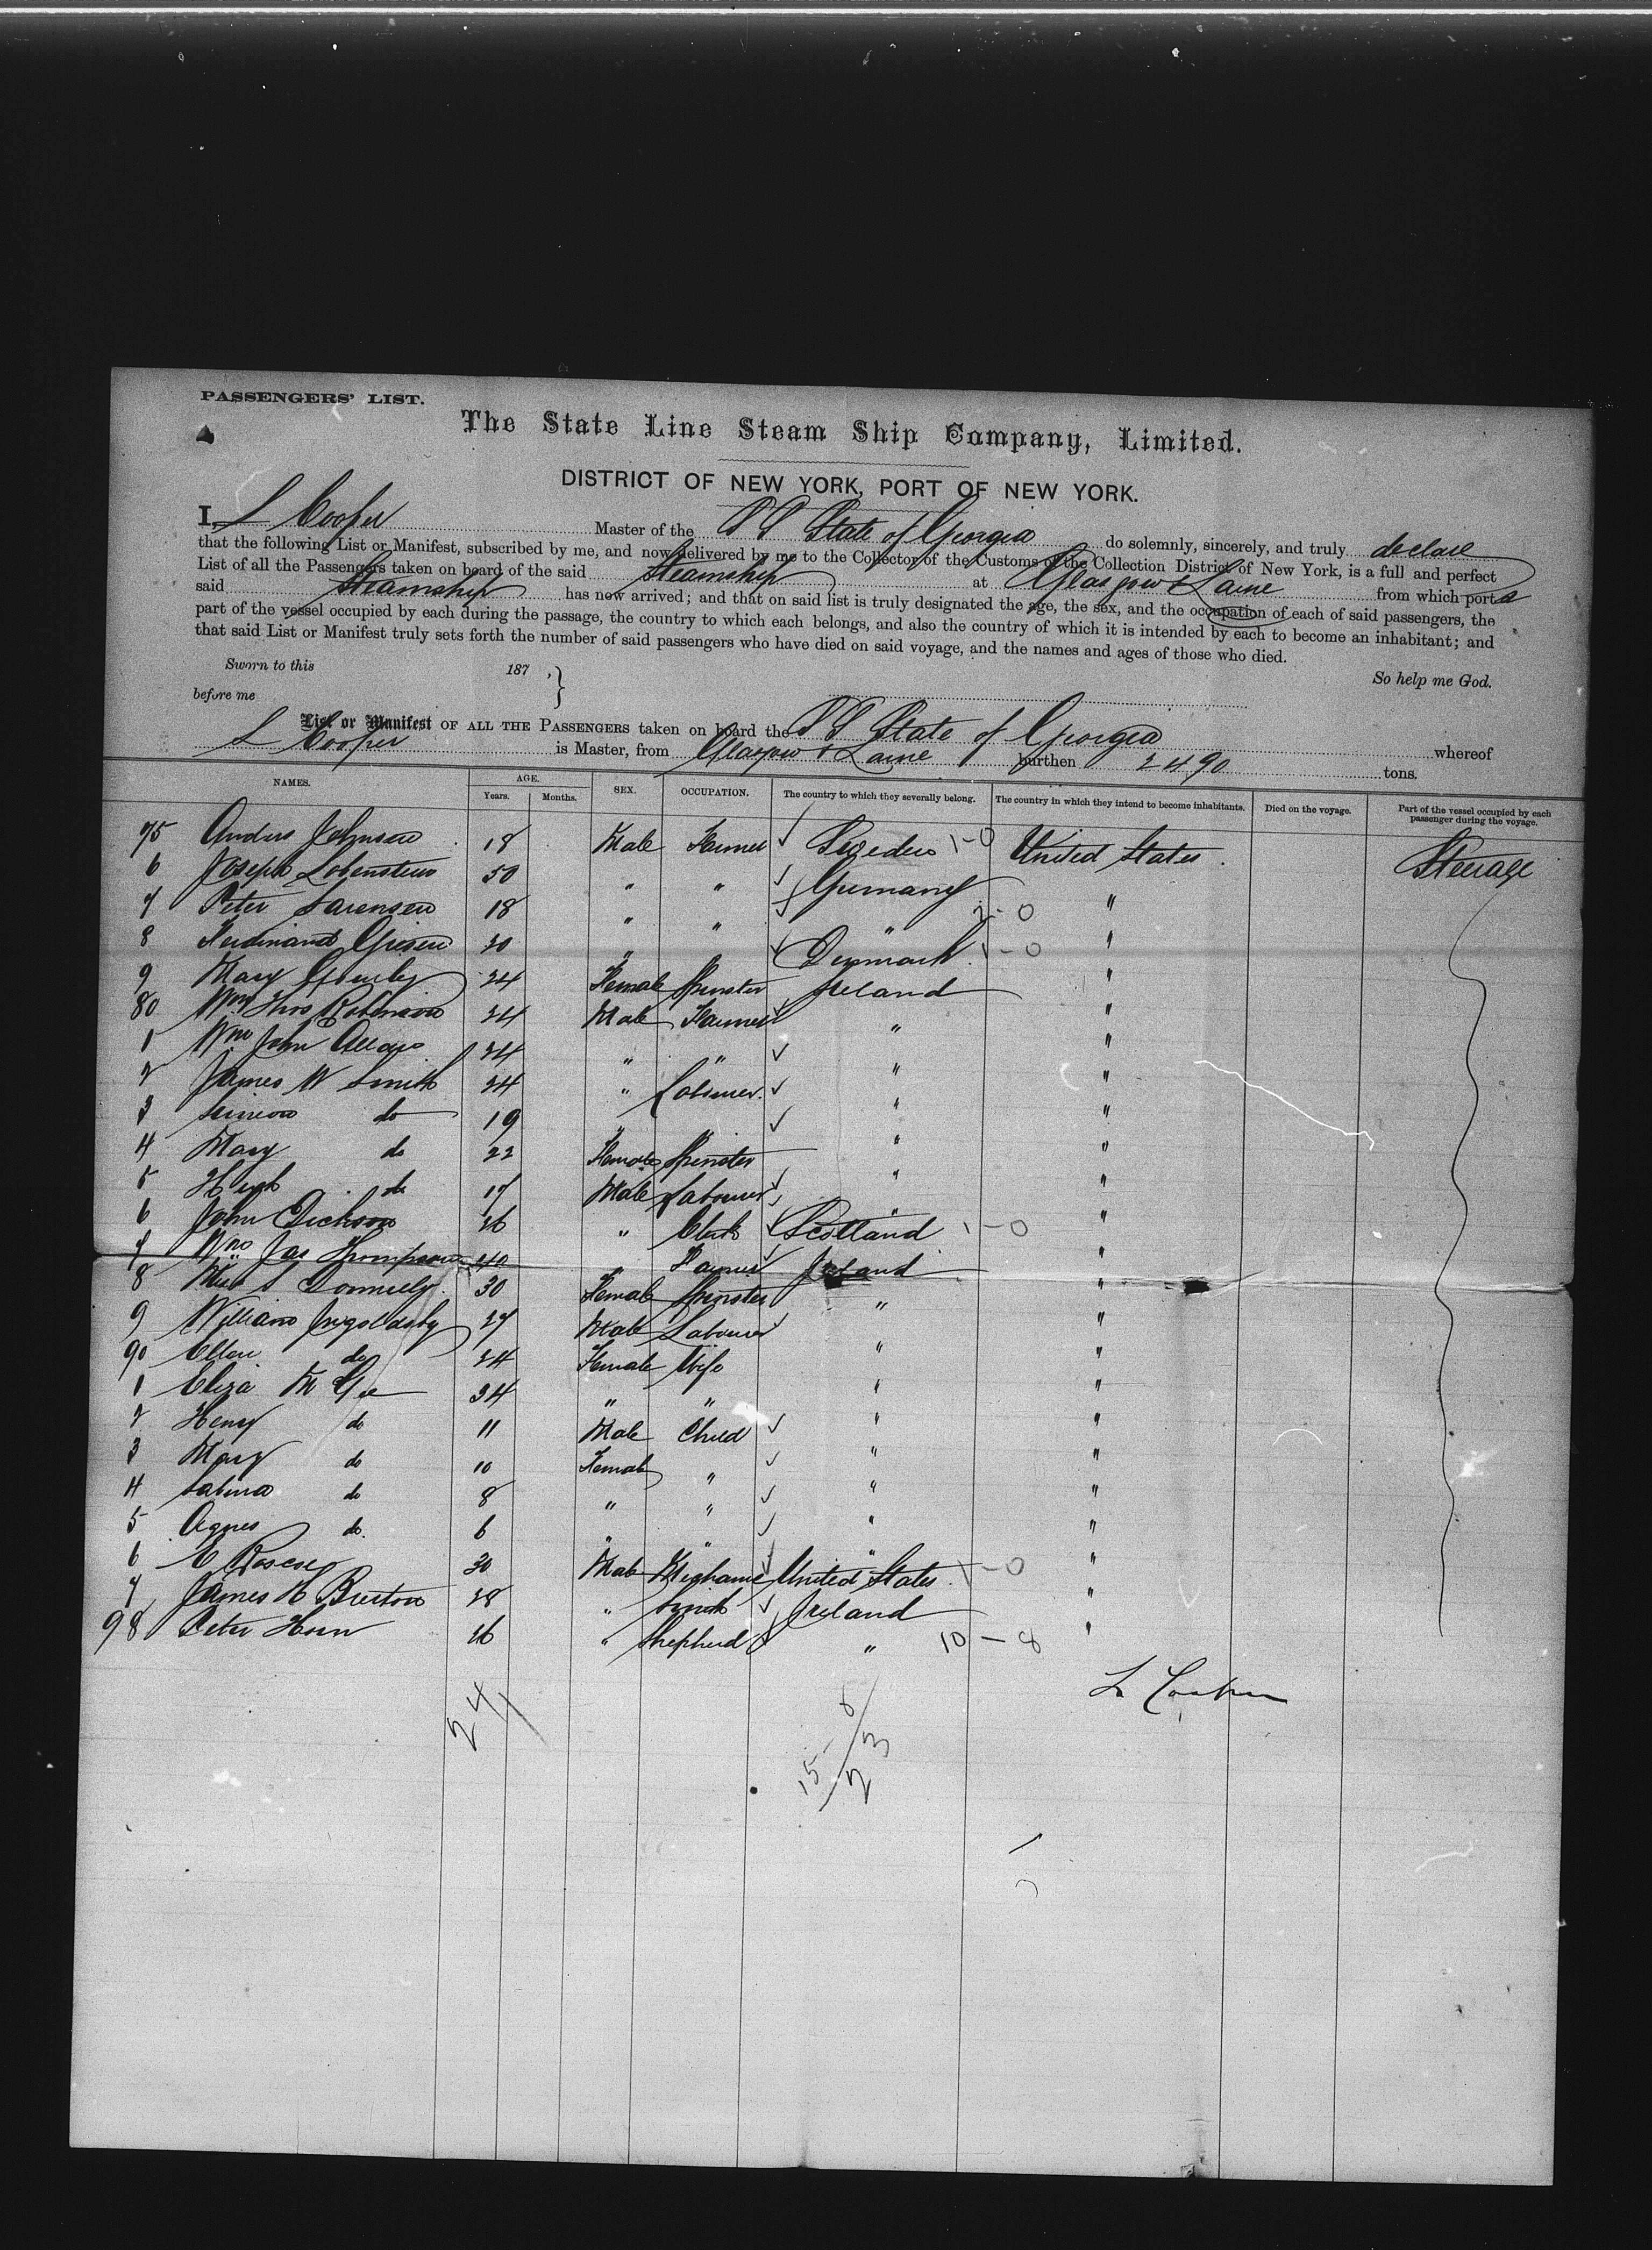 PASSENGERS' LIST.
The State Line Steam Ship Company, Limited.
DISTRICT OF NEW YORK, PORT OF NEW YORK.
I, L Cooper Master of the S S State of Georgia do solemnly, sincerely, and truly declare
that the following List or Manifest, subscribed by me, and now delivered by me to the Collector of the Customs of the Collection District of New York, is a full and perfect
List of all the Passengers taken on board of the said Steamship at Glasgow & Larne from which port s
said Steamship has now arrived; and that on said list is truly designated the age, the sex, and the occupation of each of said passengers, the
part of the vessel occupied by each during the passage, the country to which each belongs, and also the country of which it is intended by each to become an inhabitant; and
that said List or Manifest truly sets forth the number of said passengers who have died on said voyage, and the names and ages of those who died.
Sworn to this 187 , } So help me God.
before me
List or Manifest OF ALL THE PASSENGERS taken on board the S S State of Georgia whereof
L Cooper is Master, from Glasgow & Larne burthen 2490 tons.
NAMES. AGE. Years. Months. SEX. OCCUPATION. The country to which they severally belong. The country in which they intend to become inhabitants. Died on the voyage. Part of the vessel occupied by each passenger during the voyage.
75 Anders Johnsen 18 Male Farmer Sweden 1-0 United States Steerage
6 Joseph 50 " " Germany "
7 Peter Sorensen 18 " " " 2-0 "
8 Ferdinand 20 " Denmark 1-0 "
9 Mary 24 Female Spinster Ireland "
80 Wm Thos Robinson 24 Male Farmer " "
1 Wm John 24 " " " "
2 James W Smith 24 " Labourer " "
3 Simeon do 19 " " " "
4 Mary do 22 Female Spinster " "
5 Hugh do 17 Male Labourer " "
6 John Dickson 26 " Clerk Scotland 1-0 "
7 Wm Jas Thompson 40 " Farmer Ireland "
8 Miss S Donnelly 30 Female Spinster " "
9 William Ingoldsby 27 Male Labourer " "
90 Ellen do 24 Female Wife " "
1 Eliza McGee 34 " " " "
2 Henry do 11 Male Child " "
3 Mary do 10 Female " " "
4 Sabina do 8 " " " "
5 Agnes do. 6 " " " "
6 E Roscoe 30 Male Mechanic United States 1-0 "
7 James H Burton 28 " Smith Ireland "
98 Peter Horn 26 " Shepherd " 10-8 "
L Cooper
24
15 8
23